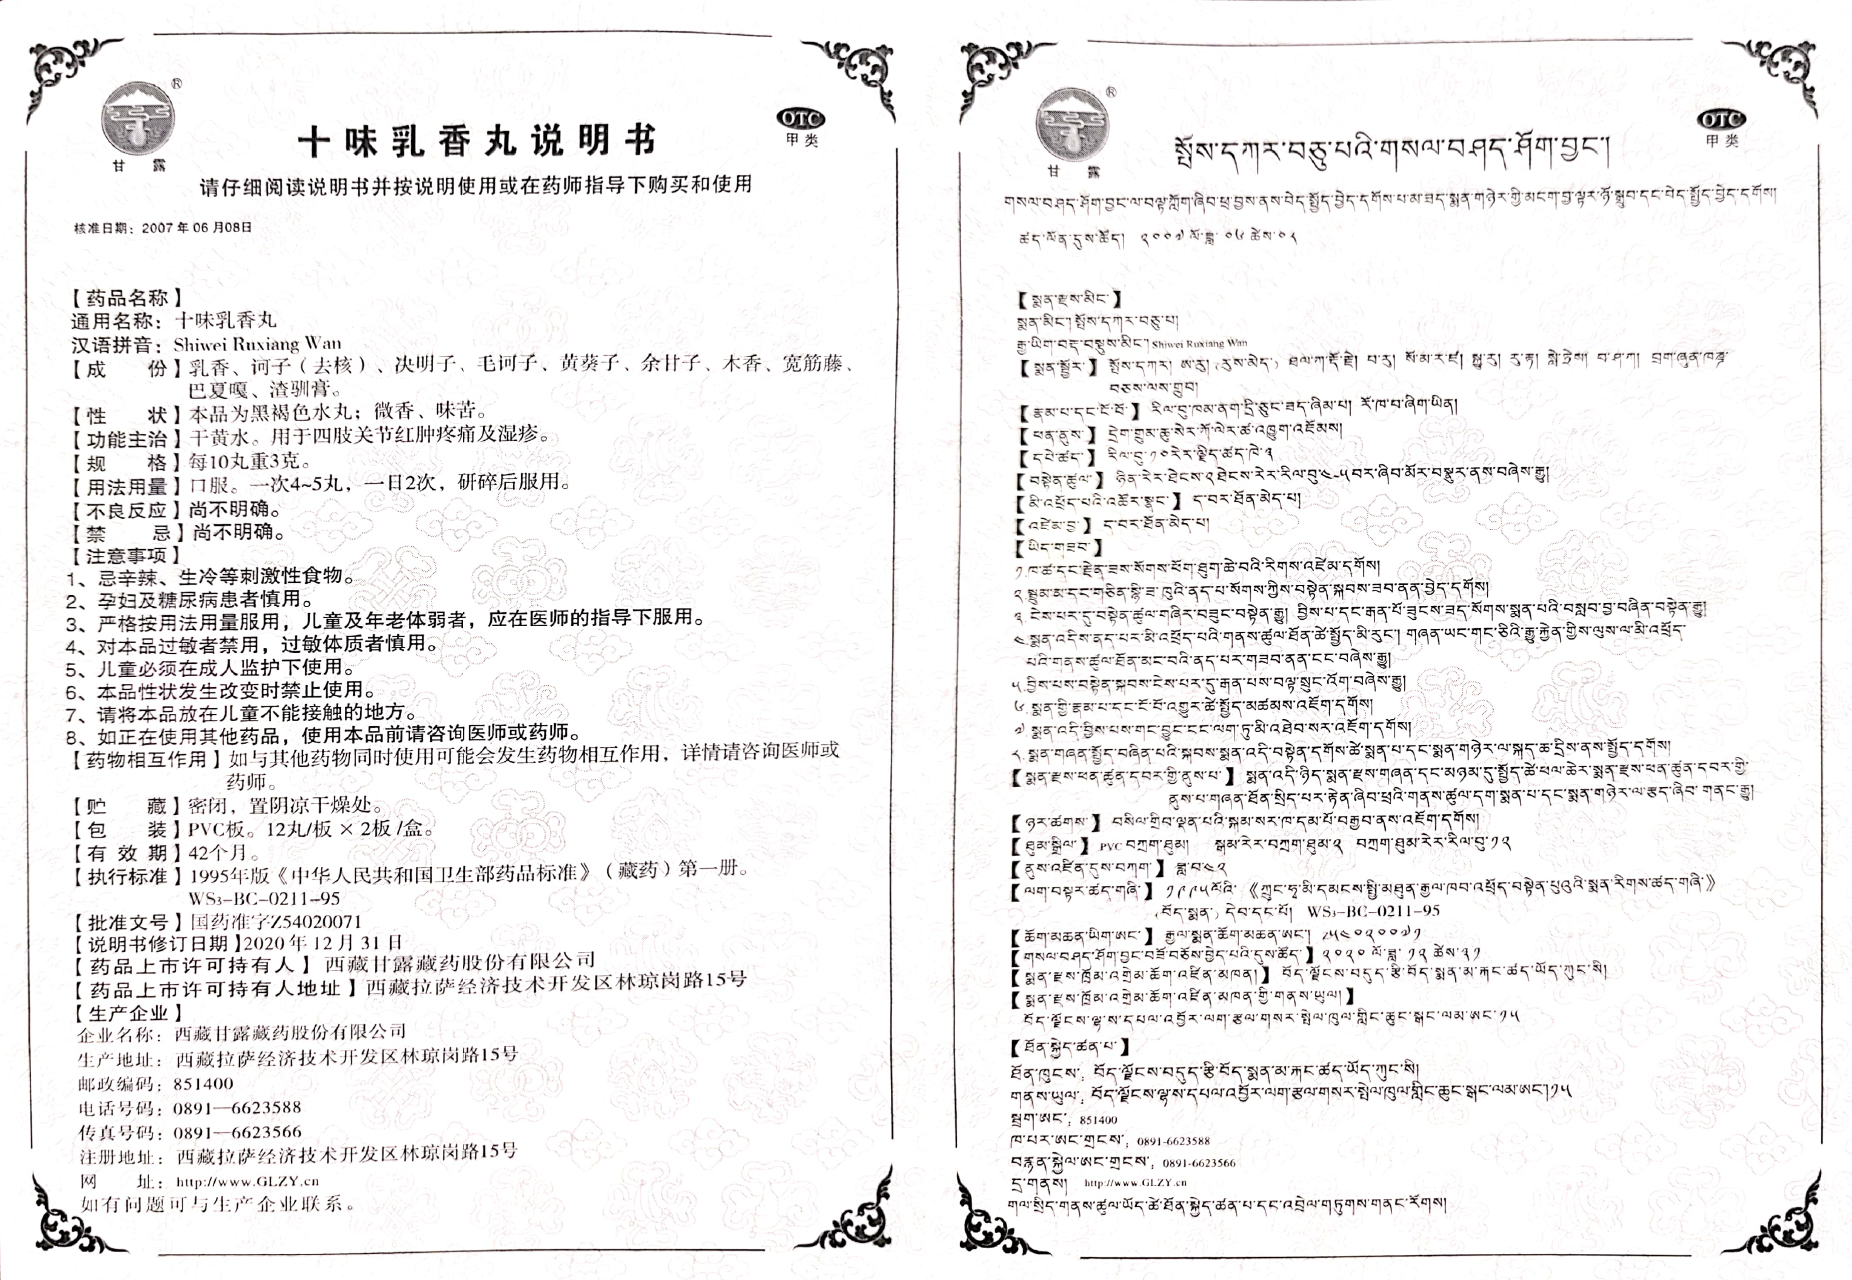 ®
甘 露
OTC
甲类
十味乳香丸说明书
请仔细阅读说明书并按说明使用或在药师指导下购买和使用
核准日期：2007 年 06 月08日
【药品名称】
通用名称：十味乳香丸
汉语拼音：Shiwei Ruxiang Wan
【成 份】乳香、诃子（去核）、决明子、毛诃子、黄葵子、余甘子、木香、宽筋藤、
巴夏嘎、渣驯膏。
【性 状】本品为黑褐色水丸；微香、味苦。
【功能主治】干黄水。用于四肢关节红肿疼痛及湿疹。
【规 格】每10丸重3克。
【用法用量】口服。一次4~5丸，一日2次，研碎后服用。
【不良反应】尚不明确。
【禁 忌】尚不明确。
【注意事项】
1、忌辛辣、生冷等刺激性食物。
2、孕妇及糖尿病患者慎用。
3、严格按用法用量服用，儿童及年老体弱者，应在医师的指导下服用。
4、对本品过敏者禁用，过敏体质者慎用。
5、儿童必须在成人监护下使用。
6、本品性状发生改变时禁止使用。
7、请将本品放在儿童不能接触的地方。
8、如正在使用其他药品，使用本品前请咨询医师或药师。
【药物相互作用】如与其他药物同时使用可能会发生药物相互作用，详情请咨询医师或
药师。
【贮 藏】密闭，置阴凉干燥处。
【包 装】PVC板。12丸/板 × 2板 /盒。
【有 效 期】42个月。
【执行标准】1995年版《中华人民共和国卫生部药品标准》（藏药）第一册。
WS₃-BC-0211-95
【批准文号】国药准字Z54020071
【说明书修订日期】2020 年 12 月 31 日
【药品上市许可持有人】西藏甘露藏药股份有限公司
【药品上市许可持有人地址】西藏拉萨经济技术开发区林琼岗路15号
【生产企业】
企业名称：西藏甘露藏药股份有限公司
生产地址：西藏拉萨经济技术开发区林琼岗路15号
邮政编码：851400
电话号码：0891—6623588
传真号码：0891—6623566
注册地址：西藏拉萨经济技术开发区林琼岗路15号
网 址：http://www.GLZY.cn
如有问题可与生产企业联系。
®
甘 露
OTC
甲类
སྤོས་དཀར་བཅུ་པའི་གསལ་བཤད་ཤོག་བྱང་།
ཚད་ལོན་དུས་ཚོད། ༢༠༠༧ ལོ་ཟླ་ ༠༦ ཚེས་༠༨
【སྨན་རྫས་མིང་】
སྨན་མིང་། སྤོས་དཀར་བཅུ་པ།
རྒྱ་ཡིག་བརྡ་བསྡུས་མིང་། Shiwei Ruxiang Wan
བཅས་ལས་གྲུབ།
【རྣམ་པ་དང་ངོ་བོ་】 རིལ་བུ་ཁམ་ནག་དྲི་ཅུང་ཟད་ཞིམ་པ། རོ་ཁ་བ་ཞིག་ཡིན།
【ཕན་ནུས་】 དྲེག་གྲུམ་ཆུ་སེར་ཀོ་ལེར་ཚ་འཁྲུག་འཇོམས།
【དཔེ་ཚད་】 རིལ་བུ་༡༠རེར་ལྗིད་ཚད་ཁེ་༣
【བསྟེན་ཚུལ་】 ཉིན་རེར་ཐེངས་༢ཐེངས་རེར་རིལ་བུ་༤-༥བར་ཞིབ་མོར་བསྣུར་ནས་བཞེས་རྒྱུ།
【མི་འཕྲོད་པའི་འཚོར་སྣང་】 ད་བར་ཐོན་མེད་པ།
【འཛེམ་བྱ་】 ད་བར་ཐོན་མེད་པ།
【ཡིད་གཟབ་】
༥.བྱིས་པས་བསྟེན་སྐབས་ངེས་པར་དུ་རྒན་པས་བལྟ་སྲུང་འོག་བཞེས་རྒྱུ།
༦.སྨན་གྱི་རྣམ་པ་དང་ངོ་བོ་འགྱུར་ཚེ་སྤྱོད་མཚམས་འཇོག་དགོས།
༧.སྨན་འདི་བྱིས་པས་གང་བྱུང་ངང་ལག་ཏུ་མི་འཐེབ་སར་འཇོག་དགོས།
【ཉར་ཚགས་】 བསིལ་གྲིབ་ལྡན་པའི་སྐམ་སར་ཁ་དམ་པོ་བརྒྱབ་ནས་འཇོག་དགོས།
【ནུས་འཛིན་དུས་བཀག་】 ཟླ་བ་༤༢
(བོད་སྨན་) དེབ་དང་པོ། WS₃-BC-0211-95
【སྨན་རྫས་ཁྲོམ་འགྲེམ་ཆོག་འཛིན་མཁན།】 བོད་ལྗོངས་བདུད་རྩི་བོད་སྨན་མ་རྐང་ཚད་ཡོད་ཀུང་སི།
【སྨན་རྫས་ཁྲོམ་འགྲེམ་ཆོག་འཛིན་མཁན་གྱི་གནས་ཡུལ།】
བོད་ལྗོངས་ལྷ་ས་དཔལ་འབྱོར་ལག་རྩལ་གསར་སྤེལ་ཁུལ་གླིང་ཆུང་སྒང་ལམ་ཨང་༡༥
【ཐོན་སྐྱེད་ཚན་པ་】
ཐོན་ཁུངས་：བོད་ལྗོངས་བདུད་རྩི་བོད་སྨན་མ་རྐང་ཚད་ཡོད་ཀུང་སི།
གནས་ཡུལ་：བོད་ལྗོངས་ལྷ་ས་དཔལ་འབྱོར་ལག་རྩལ་གསར་སྤེལ་ཁུལ་གླིང་ཆུང་སྒང་ལམ་ཨང་།༡༥
སྦྲག་ཨང་：851400
ཁ་པར་ཨང་གྲངས་：0891-6623588
བརྙན་སྐྱེལ་ཨང་གྲངས་：0891-6623566
དྲ་གནས། http://www.GLZY.cn
གལ་སྲིད་གནས་ཚུལ་ཡོད་ཚེ་ཐོན་སྐྱེད་ཚན་པ་དང་འབྲེལ་གཏུགས་གནང་རོགས།